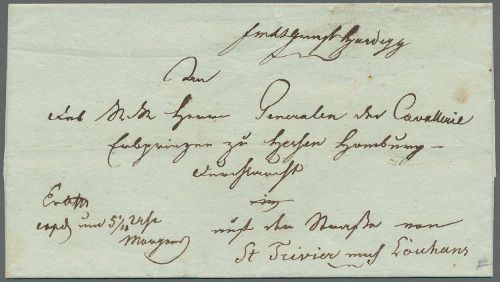 Hardegg
An
des K K Herrn Generalen der Cavallerie
Erbprinzen zu Hessen Homburg
Durchlaucht
expd um 5 1/4 Uhr
Morgens
auf der Straße von
St Trivier nach Louhans